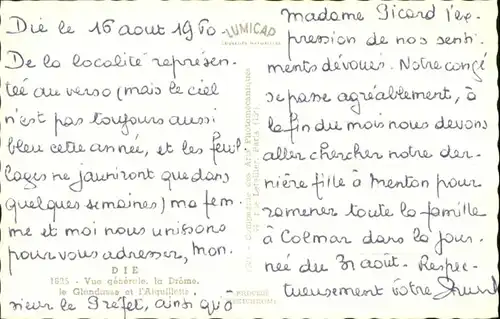 Die le 16 aout 1960.
De la localité représen-
tée au verso (mais le ciel
n'est pas toujours aussi
bleu cette année, et les feuil
lages ne jauniront que dans
quelques semaines) ma fem-
me et moi nous unissons
pour vous adresser, Mon-
sieur le Préfet, ainsi qu'à
LUMICAP
DIE
1835 - Vue générale, la Drôme,
le Glandasse et l'Aiguillette
Madame Picard l'ex-
pression de nos senti-
ments dévoués. Notre congé
se passe agréablement, à
la fin du mois nous devons
aller chercher notre der-
nière fille à Menton pour
ramener toute la famille
à Colmar dans la jour-
née du 31 août. Respec-
tueusement vôtre